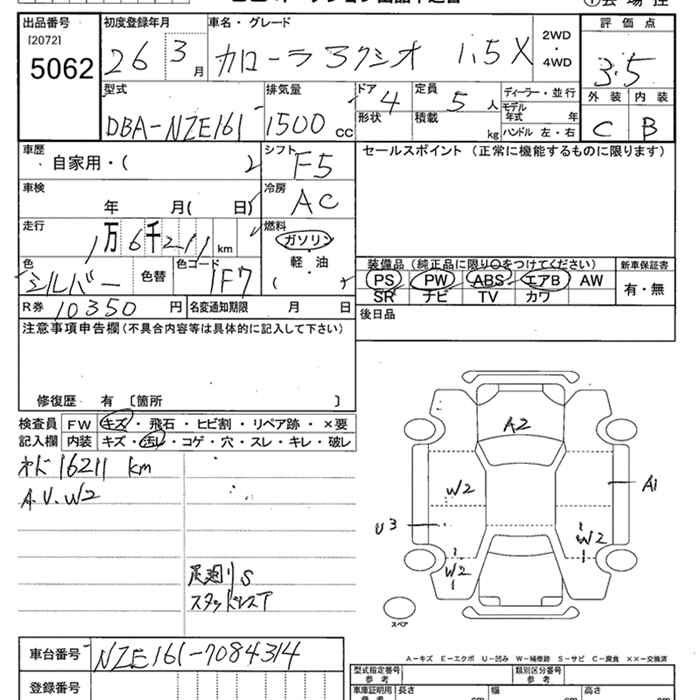 出品番号 初度登録年月 車名・グレード 2WD ・ 4WD 評価点
[2072]
5062 26 3月 カローラアクシオ 1.5X 3.5
型式 排気量 ドア 定員 ディーラー・並行 外装 内装
DBA-NZE161 1500 cc 4 5 人 モデル年式 年 C B
形状 積載 kg ハンドル 左・右
車歴 シフト セールスポイント (正常に機能するものに限ります)
自家用・( ) F5
車検 冷房
年 月( 日) AC
走行 燃料
1万6千211km ガソリン
軽・油
色 色替 色コード ( )
シルバー 1F7
装備品 (純正品に限り○をつけてください) 新車保証書
PS PW ABS エアB AW 有・無
SR ナビ TV カワ
R券 10350 円 名変通知期限 月 日 後日品
注意事項申告欄 (不具合内容等は具体的に記入して下さい)
修復歴 有 〔箇所 〕
検査員 FW キズ・飛石・ヒビ割・リペア跡・×要
記入欄 内装 キズ・汚レ・コゲ・穴・スレ・キレ・破レ
16211 km
A.U.W2
足廻りS
スタッドレスT
A2
W2
A1
U3
W2
W2
スペア
A-キズ E-エクボ U-凹み W-補修跡 S-サビ C-腐食 ××-交換済
車台番号 NZE161-7084314
登録番号
型式指定番号 参考 類別区分番号 参考
車庫証明用 参考 長さ cm 幅 cm 高さ cm